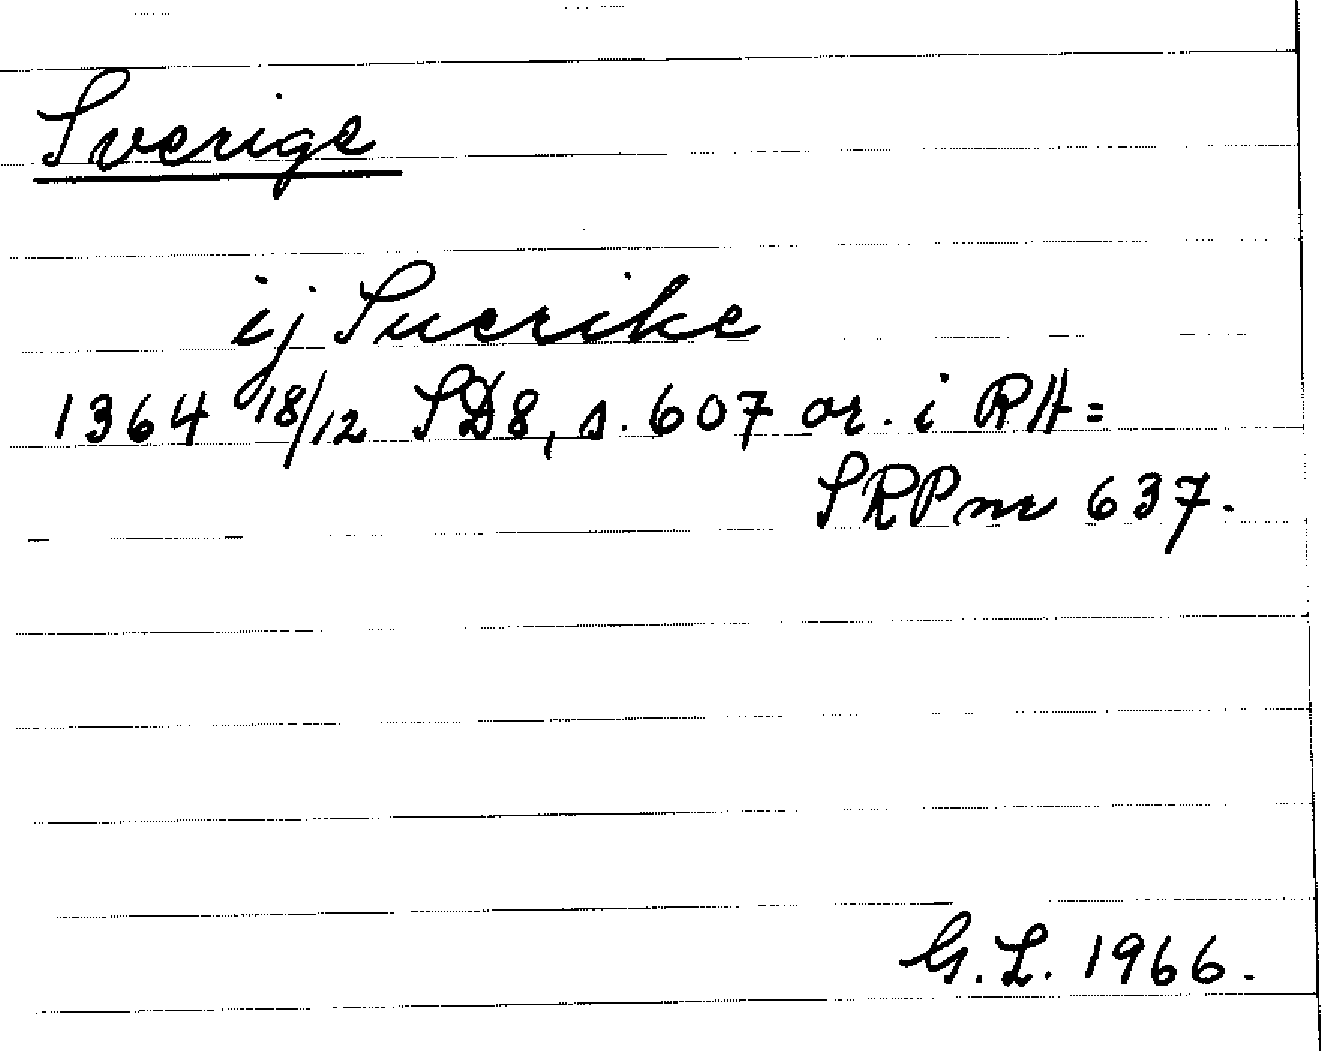 Sverige
ij Suerike
1364 18/12 SD8, s. 607 or. i RA=
SRP nr 637.
G.L. 1966.